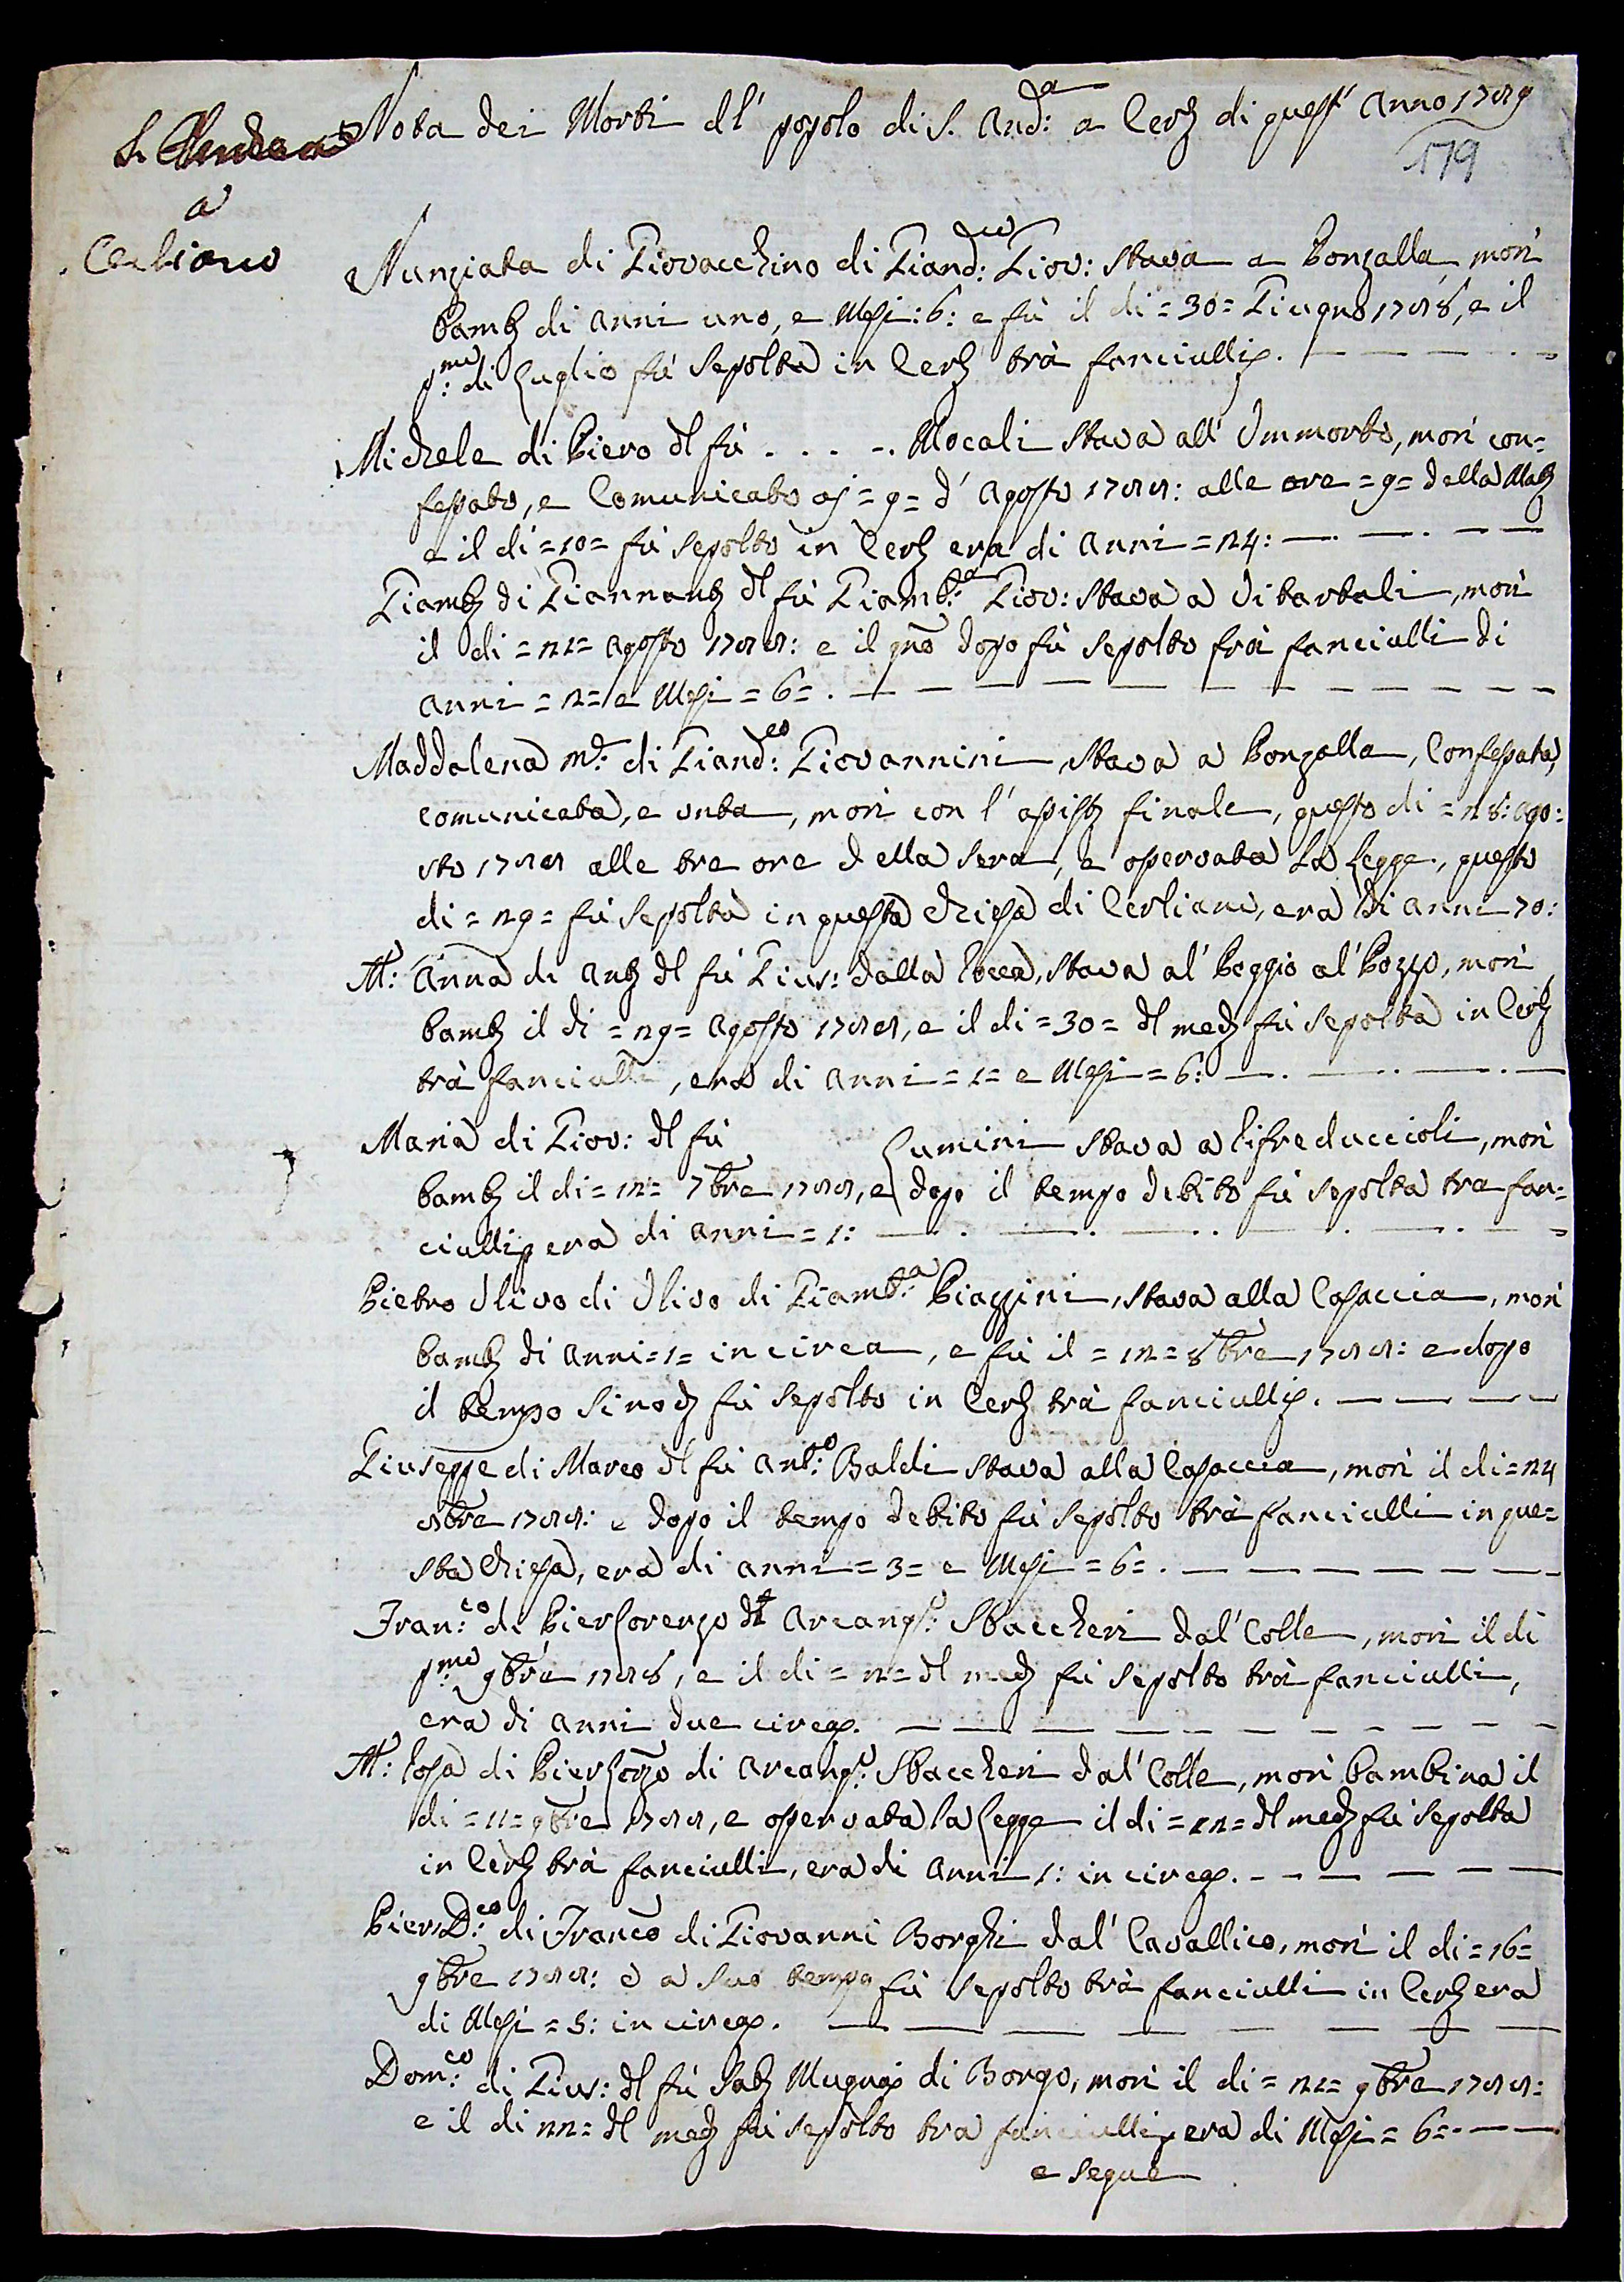 Nota dei Morti dl' popolo di S. And:a a Cerl di quest' Anno 1789
179
S. Andrea
a
Cerliano
Nunziata di Giovacchino di Giand:co Giov: stava a Bonzalla morì
bamb di anni uno, e Mesi: 6: e fù il di = 30 = Giugno 1788, e il
p:mo di Luglio fù sepolta in Cerl trà fanciulli.
Michele di Piero dl fù . . . . . Mocali stava all' Ommorto, morì con=
fessato, e Comunicato a = 9 = d' Agosto 1788: alle ore = 9 = della Mat
e il di = 10 = fù sepolto in Cerl era di anni = 24:
Giamb di Giannant dl fù Giamb:a Giov: stava a Vitartali, morì
il di = 21 = Agosto 1788: e il gno dopo fù sepolto frà fanciulli di
anni = 2 = e Mesi = 6 = .
Maddalena m: di Giand:co Giovannini, stava a Bonzalla, Confessata,
comunicata, e unta, morì con l' assist finale, questo di = 28: ago:
sto 1788 alle tre ore della sera, e osservata la Legge, questo
di = 29 = fù sepolta in questa Chiesa di Cerliano, era di anni 70:
M: Anna di Ant dl fù Gius: dalla Rocca, stava al' Poggio al' Pozzo, morì
bamb il di = 29 = Agosto 1788, e il di = 30 = dl med fù sepolta in Cerl
trà fanciulli, era di anni = 1 = e Mesi = 6:
Maria di Giov: dl fù Lumini stava a Rifreduccioli, morì
bamb il di = 12 = 7bre 1788, e dopo il tempo debito fù sepolta tra fan=
ciulli era di anni = 1:
Pietro Olivo di Olivo di Giamb:a Biaggini, stava alla Casaccia, morì
bamb di anni = 1 = in circa, e fù il = 12 = 8bre 1788: e dopo
il tempo sinod fù sepolto in Cerl trà fanciulli.
Giuseppe di Marco dl fù Ant:o Baldi stava alla Casaccia, morì il di = 24
8bre 1788: e dopo il tempo debito fù sepolto trà fanciulli in que=
sta Chiesa, era di anni = 3 = e Mesi = 6 = .
Fran:co di Pier Lorenzo dl Arcang: Staccheri dal' Colle, morì il di
p:mo 9bre 1788, e il di = 2 = dl med fù sepolto trà fanciulli,
era di anni due circa.
M: Rosa di Pier Lorzo di Arcang: Staccheri dal' Colle, morì bambina il
di = 11 = 9bre 1788, e osservata la Legge il di = 12 = dl med fù sepolta
in Cerl trà fanciulli, era di anni 1: in circa.
Pier D:co di Franco di Giovanni Borghi dal' Cavallico, morì il di = 16 =
9bre 1788: e a suo tempo fù sepolto trà fanciulli in Cerl era
di Mesi = 5: in circa.
Dom:co di Gius: dl fù Sab Mugnai di Borgo, morì il di = 21 = 9bre 1788:
e il di 22 = dl med fù sepolto tra fanciulli era di Mesi = 6 =
e segue